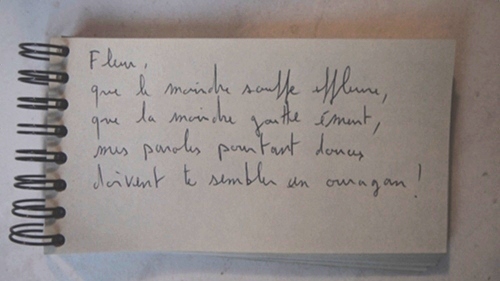 Fleur,
que le moindre souffle effleure,
que la moindre goutte émeut,
mes paroles pourtant douces
doivent te sembler un ouragan !